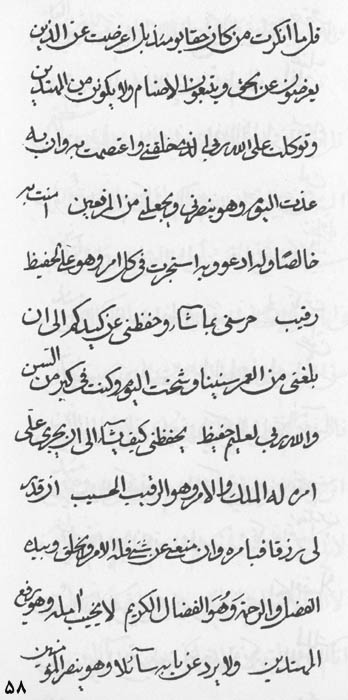 فلما انكرت من كان حقا يومئذ بل اعرضت عن الذين
يعرضون عن الحق ويتبعون الاصنام ولا يكونن من المهتدين
وتوكلت على الله ربى لذا خلقنى واعتصمت به وان به
عذت اليوم وهو ينصرنى ويجعلنى من المرفعين امنت به
خالصا وله ادعو وبه استجرت فى كل امر وهو على الحفيظ
رقيب حرسنى بما شآء وحفظنى عن كيدكم الى ان
بلغنى من العمر سنينا وشخت اليوم وكنت فى كبر من السن
والله ربى لعليم حفيظ يحفظنى كيف يشآء الى ان يجرى على
امره له الملك والامر وهو الرقيب الحسيب ان قدر
لى رزقا فبامره وان منع عن شئ فله الامر والخلق وبيده
الفضل والرحمة وهو الفضال الكريم لا يخيب امله وهو يرفع
المهتدين ولا يرد عن بابه سآئلا وهو ينصر المؤمنين
۵۸